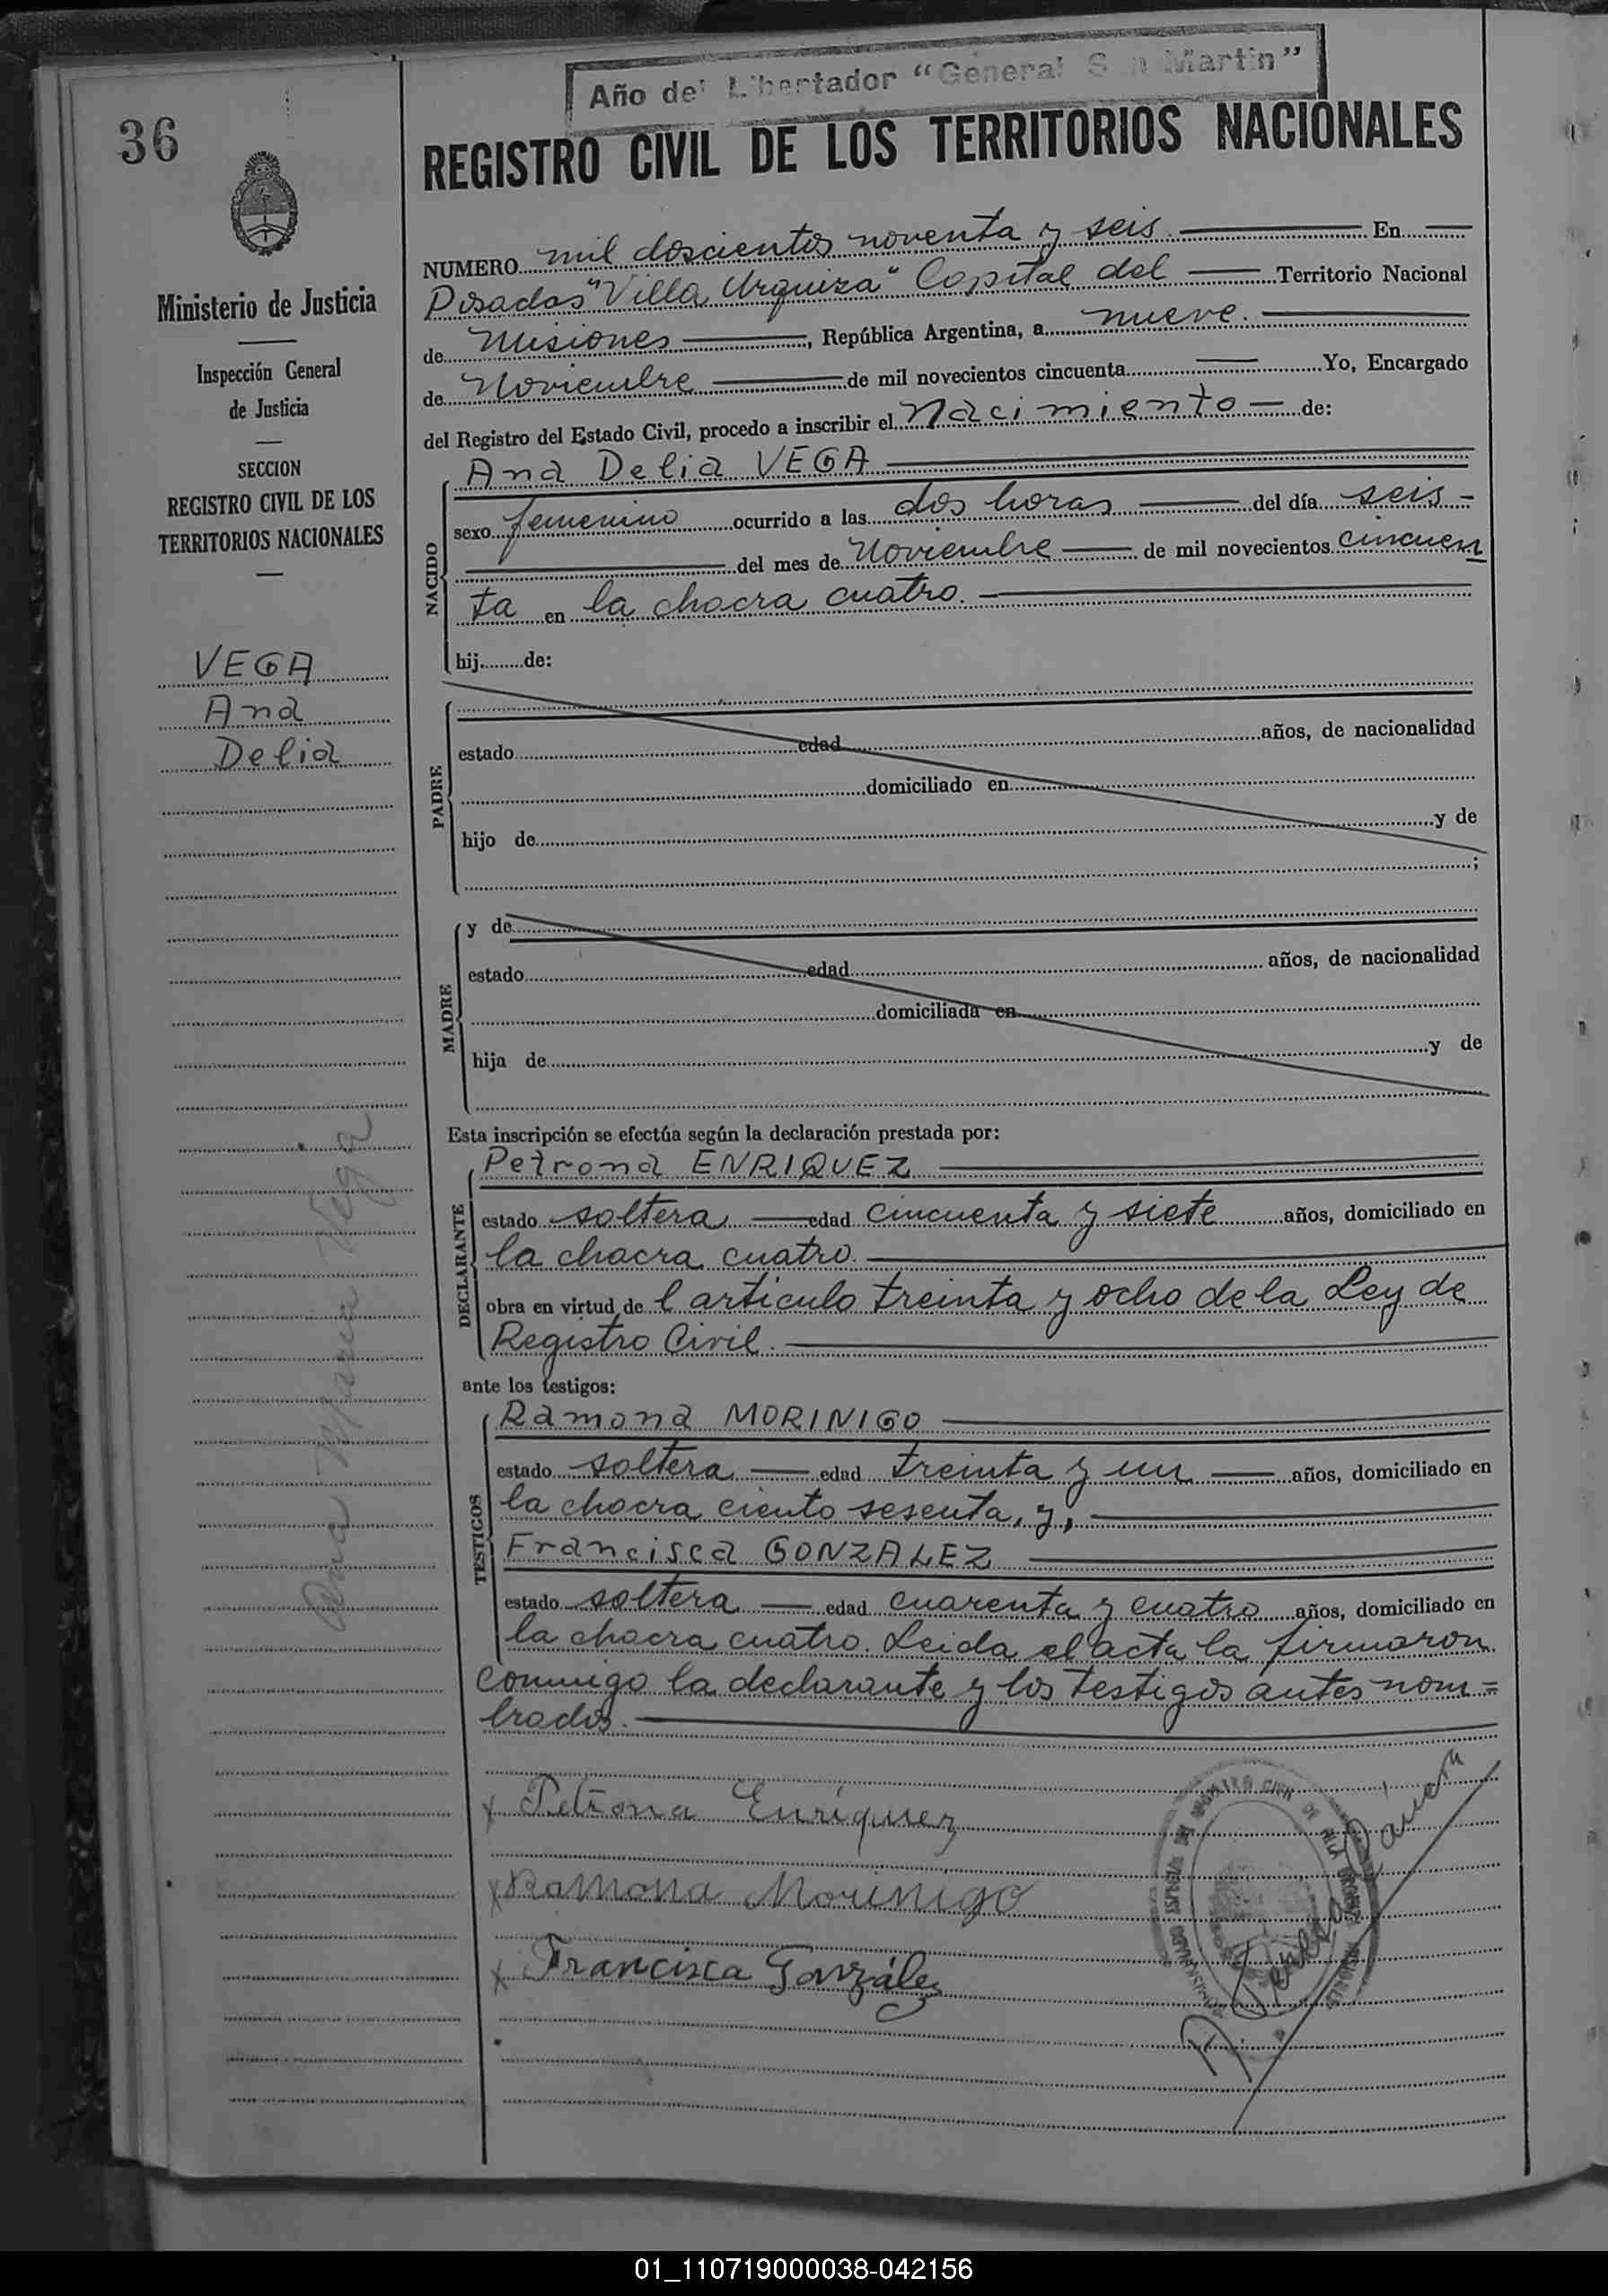 Año del Libertador "General San Martín"
36
REGISTRO CIVIL DE LOS TERRITORIOS NACIONALES
Ministerio de Justicia
Inspección General
de Justicia
SECCION
REGISTRO CIVIL DE LOS
TERRITORIOS NACIONALES
VEGA
Ana
Delia
Ana Maria Vega
NUMERO mil doscientos noventa y seis. En
Posadas "Villa Urquiza" Capital del Territorio Nacional
de Misiones, República Argentina, a nueve.
de Noviembre de mil novecientos cincuenta Yo, Encargado
del Registro del Estado Civil, procedo a inscribir el Nacimiento de:
NACIDO
Ana Delia VEGA
sexo femenino ocurrido a las dos horas del día seis
del mes de Noviembre de mil novecientos cincuen
ta en la chacra cuatro.
hij de:
PADRE
estado edad años, de nacionalidad
domiciliado en
hijo de y de
;
MADRE
y de
estado edad años, de nacionalidad
domiciliada en
hija de y de
Esta inscripción se efectúa según la declaración prestada por:
DECLARANTE
Petrona ENRIQUEZ
estado soltera edad cincuenta y siete años, domiciliado en
la chacra cuatro.
obra en virtud de l articulo treinta y ocho de la Ley de
Registro Civil.
ante los testigos:
TESTIGOS
Ramona MORINIGO
estado soltera edad treinta y un años, domiciliado en
la chacra ciento sesenta, y,
Francisca GONZALEZ
estado soltera edad cuarenta y cuatro años, domiciliado en
la chacra cuatro. Leida el acta la firmaron
conmigo la declarante y los testigos antes nom=
brados.
x Petrona Enriquez
x Ramona Morinigo
x Francisca González
01_110719000038-042156